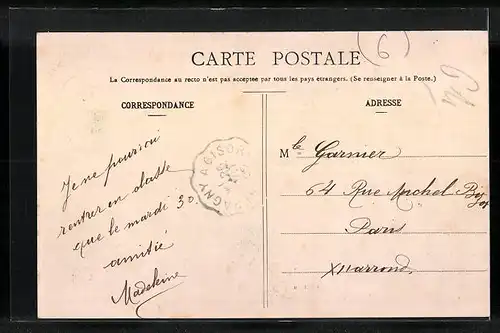 CARTE POSTALE
(6)
La Correspondance au recto n'est pas acceptée par tous les pays étrangers. (Se renseigner à la Poste.)
CORRESPONDANCE
Je ne pourrai
rentrer en classe
que le mardi 30.
amitié
Madeleine
GISORS
ADRESSE
Mle Garnier
64 Rue Michel
Paris